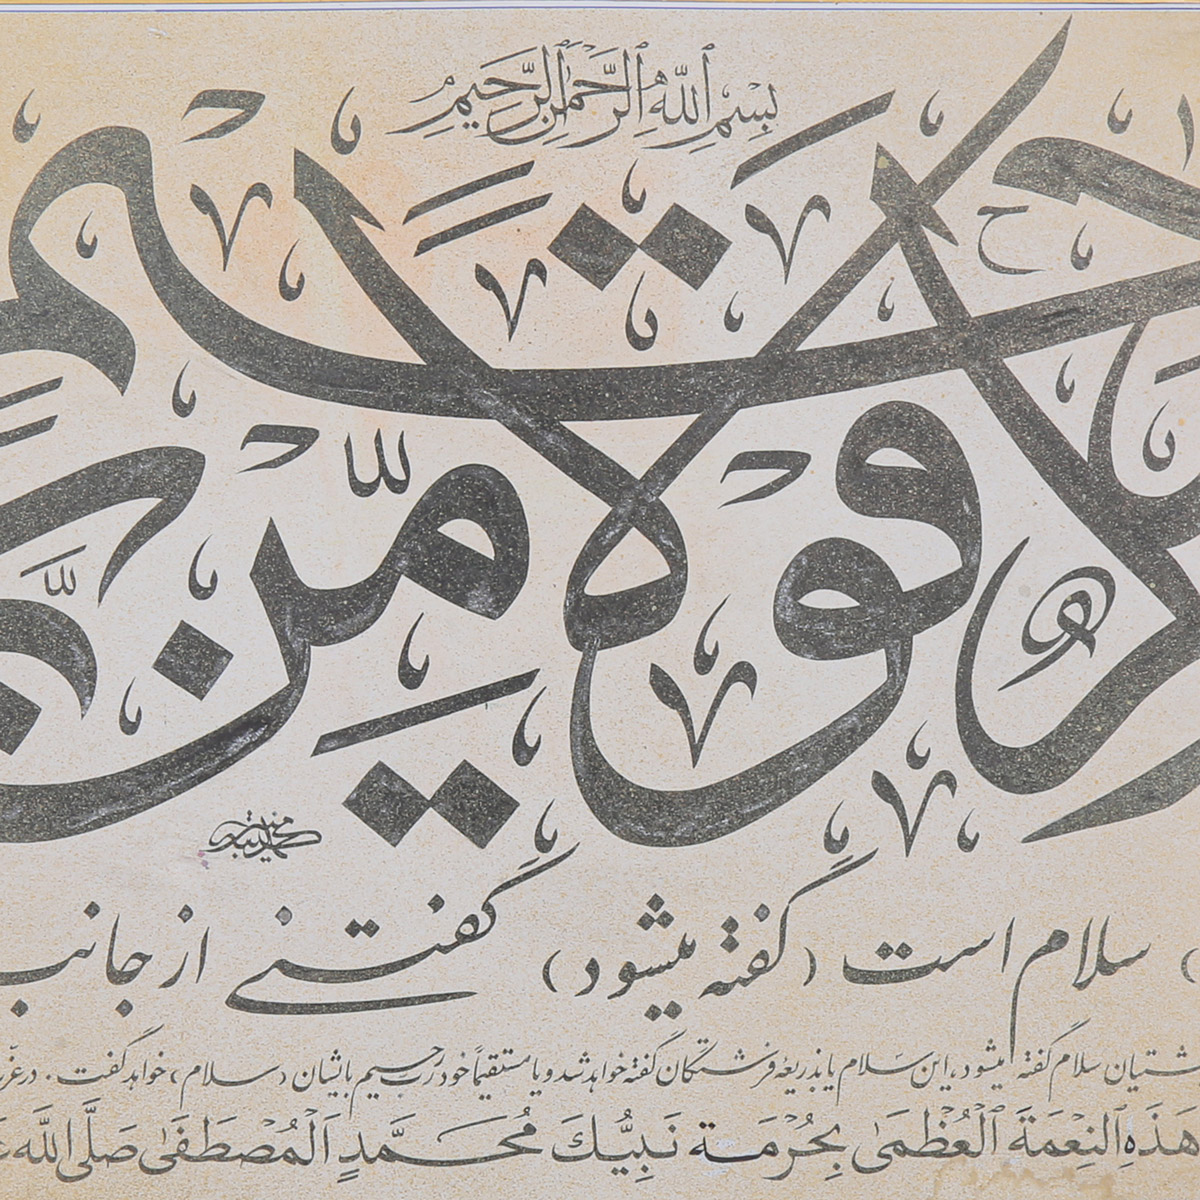 بِسْمِ ٱللَّهِ ٱلرَّحْمَٰنِ ٱلرَّحِيمِ
سَلَامٌ قَوْلًا مِّن رَّبٍّ رَّحِيمٍ
سلام است (گفته میشود) گفتنی از جانب
سلام گفته میشود، این سلام یا بذریعهٔ فرشتگان گفته خواهد شد و یا مستقیماً خود رب رحیم بایشان (سلام) خواهد گفت. در
هَذِهِ ٱلنِعْمَةَ ٱلْعُظْمَىٰ بِحُرْمَةِ نَبِيُّكَ مُحَمَّدٍ ٱلْمُصْطَفَىٰ صَلَّى اللَّه